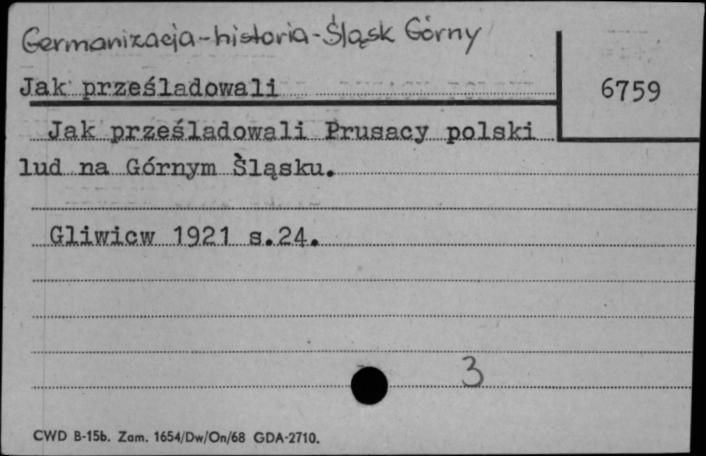 Germanizacja-historia-Śląsk Górny
Jak prześladowali
6759
Jak prześladowali Prusacy polski
lud na Górnym Śląsku.
Gliwicw 1921 s.24.
3
CWD B-15b. Zam. 1654/Dw/On/68 GDA-2710.